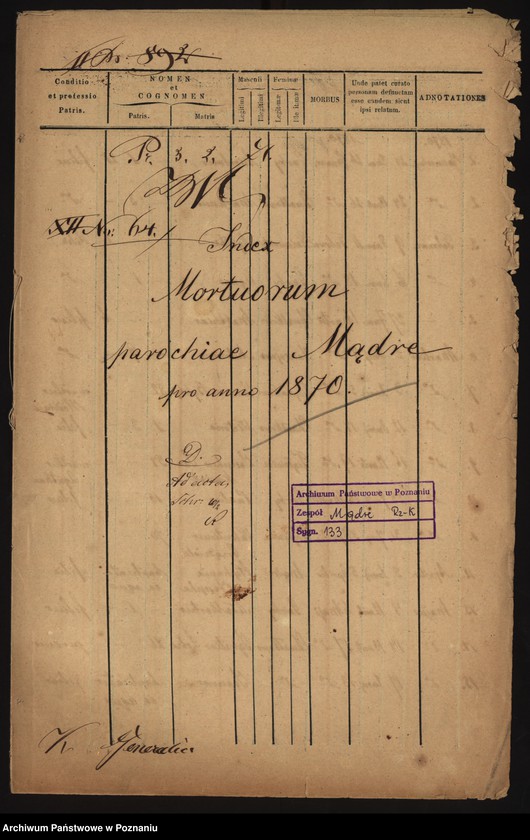 892
Conditio et professio Patris.
NOMEN et COGNOMEN
Patris.
Matris
Masculi
Legitimi
Illegitimi
Feminae
Legitimae
MORBUS
Unde patet curato personam defunctam esse eandem sicut ipsi relatum.
ADNOTATIONES
Pr. 3. 2. 71.
XII No: 64.
Index
Mortuorum
parochiae Mądre
pro anno 1870.
D.
Ad acta
Archiwum Państwowe w Poznaniu
Zespół Mądre Rz-K
Sygn. 133
K. Generalia
Archiwum Państwowe w Poznaniu